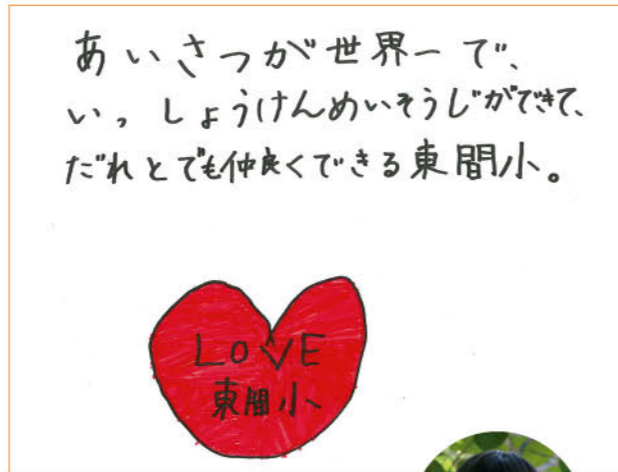 あいさつが世界一で、
いっしょうけんめいそうじができて、
だれとでも仲良くできる東間小。
LOVE
東間小